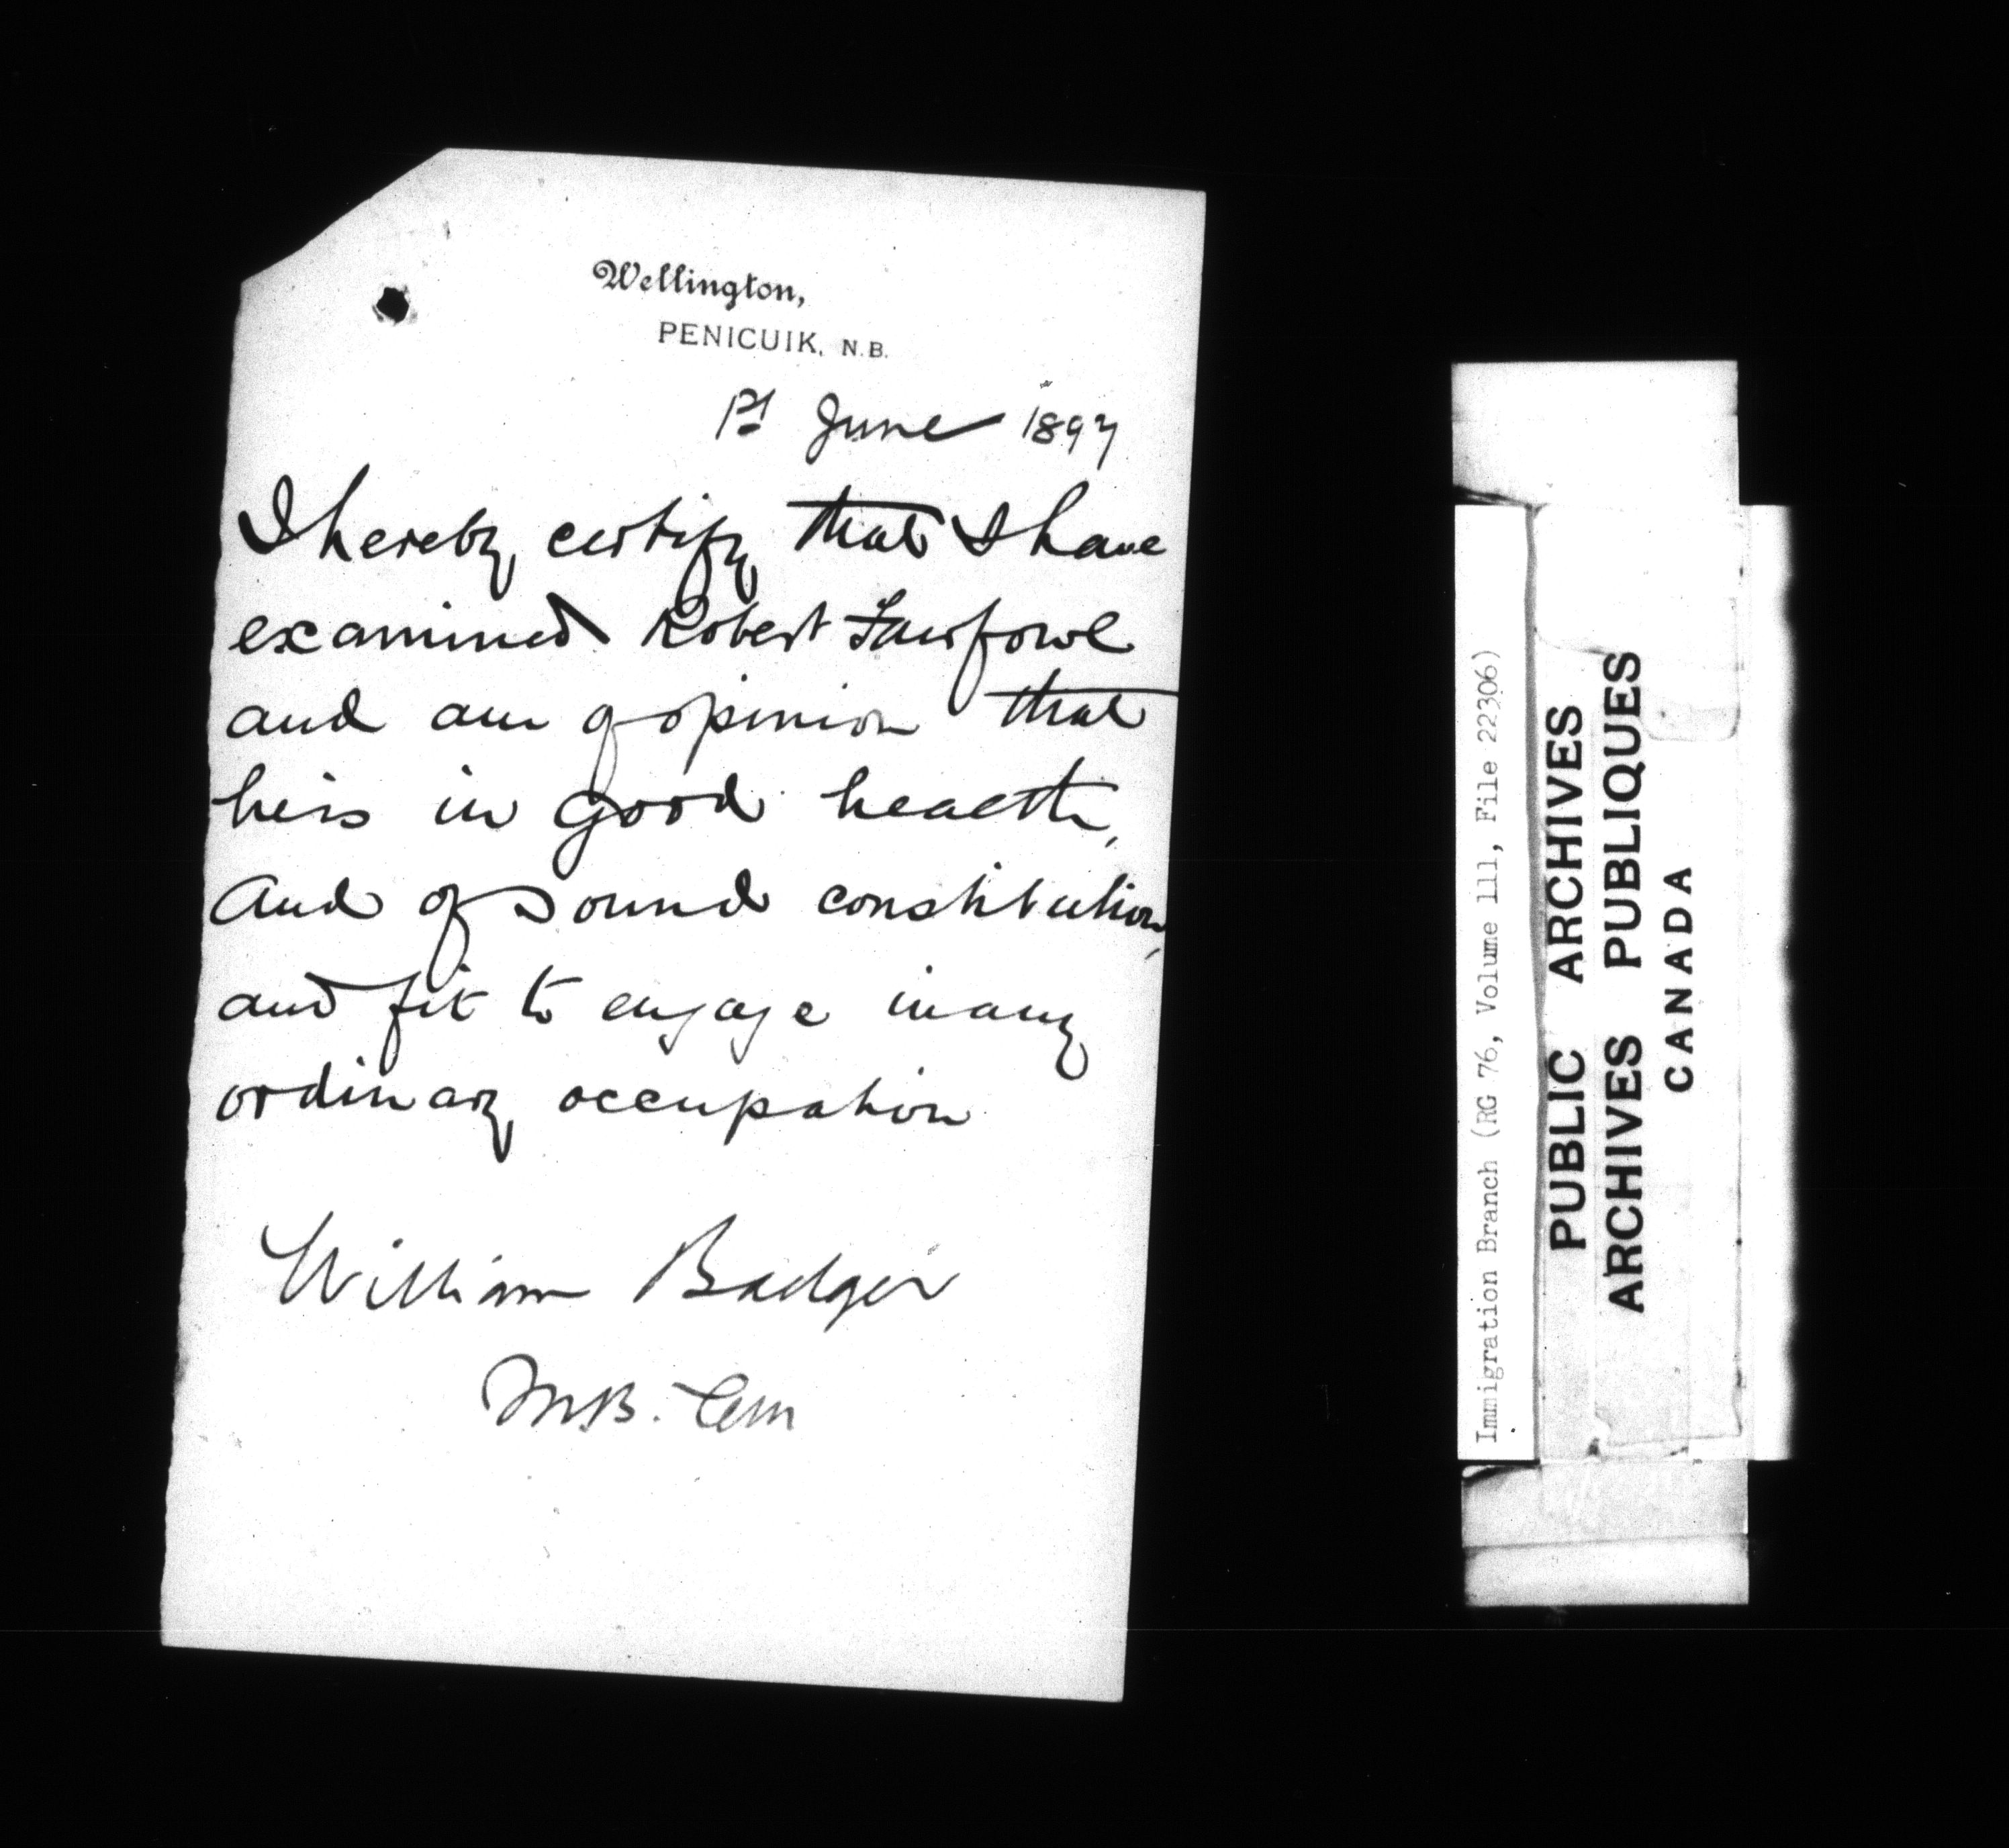 Wellington,
PENICUIK, N.B.
1st June 1897
I hereby certify that I have
examined Robert Fairfowl
and am of opinion that
he is in good health,
and of sound constitution,
and fit to engage in any
ordinary occupation
William Badger
M.B. C.M.
Immigration Branch (RG 76, Volume 111, File 22306)
PUBLIC ARCHIVES
ARCHIVES PUBLIQUES
CANADA